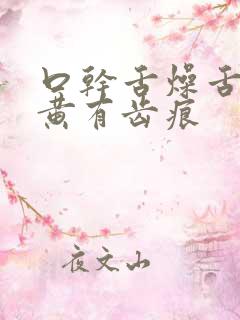 口幹舌燥舌
黄有齿痕
夜文山